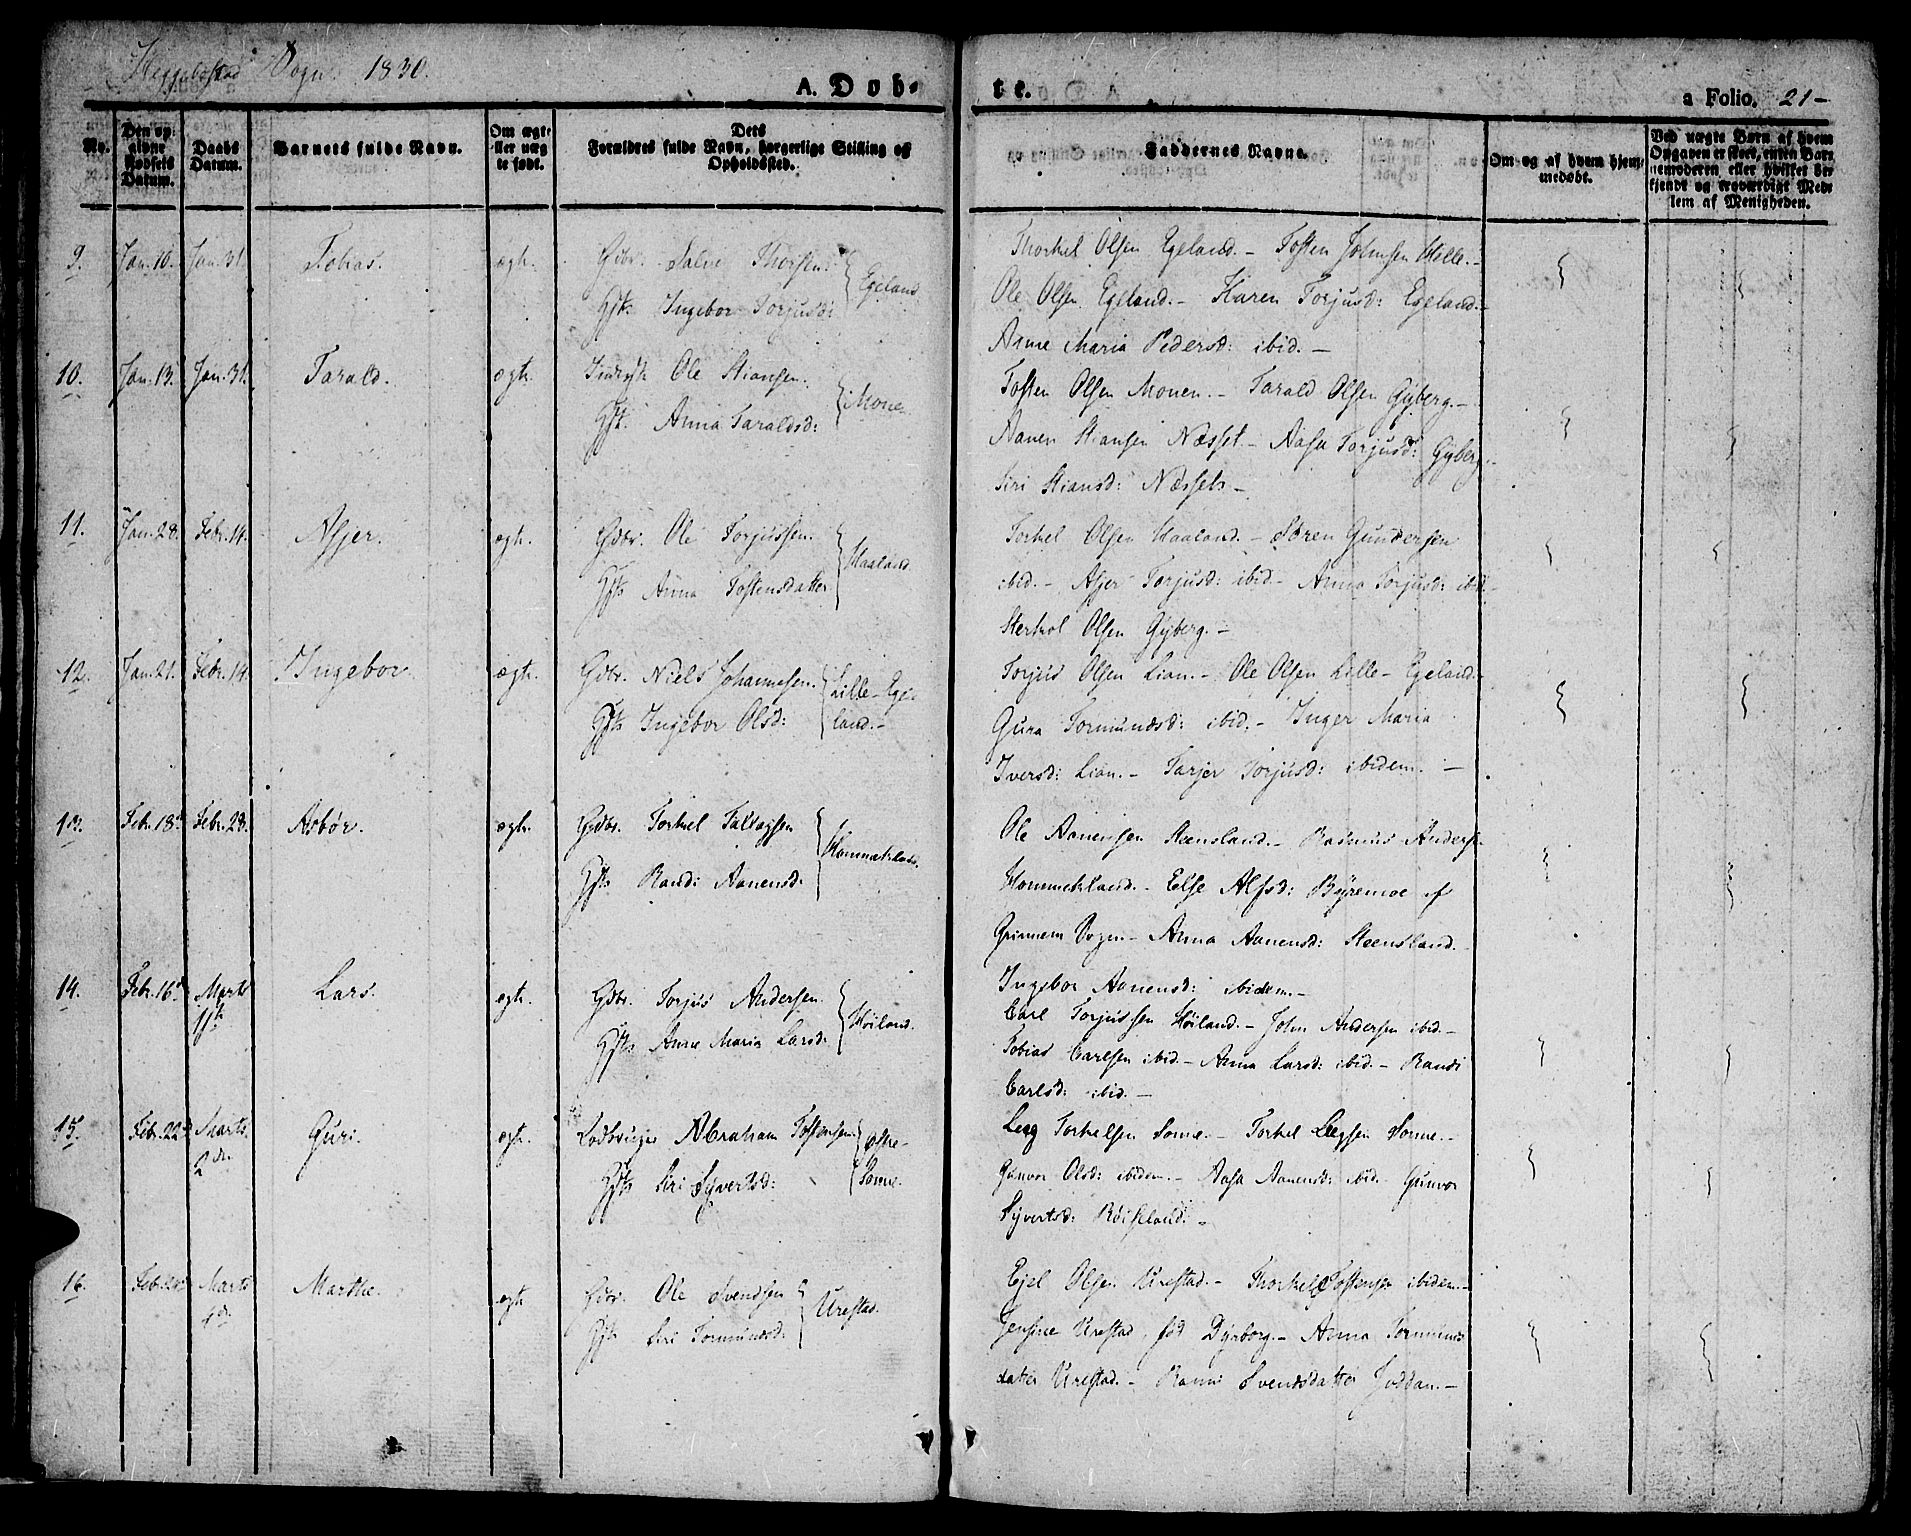 Heggebostad Sogn 1830.
A. Døb-
te.
a Folio. 21-
No.
Den op-
givne
Fødsels
Datum.
Daabs
Datum.
Barnets fulde Navn.
Om ægte
eller uæg
te født.
Dets
Forældres fulde Navn, borgerlige Stilling og
Opholdssted.
Faddernes Navne.
Om og af hvem hjem-
medøbt.
Ved uægte Børn af hvem
Opgaven er skeet, enten Bar
nemoderen eller hvilket be
kjendt og troværdigt Med-
lem af Menigheden.
9. Jan. 10. Jan. 31. Tobias. ægte. Gdbr. Salve Thorsen Egeland
Hst. Ingebor Torjusd:
Thorkel Olsen Egeland. - Tosten Johnsen Helle. -
Ole Olsen Egeland. - Karen Torjusd: Egeland. -
Anne Maria Pedersd: ibid. -
10. Jan. 13. Jan. 31. Tarald. ægte. Ole Stiansen. Monen
Hst. Anna Taraldsd:
Tosten Olsen Monen. - Tarald Olsen Gyberg. -
Aanen Stiansen Næsset. - Aasa Torjusd: Gyberg. -
Siri Stiansd: Næsset. -
11. Jan. 28. Febr. 14. Asjer. ægte. Gdbr. Ole Torjussen. Haaland.
Hst. Anna Tostensdatter
Torkel Olsen Haaland. - Søren Gundersen
ibid. - Asjer Torjusd: ibid. - Anna Torjusd: ibid. -
Sterkol Olsen Gyberg. -
12. Jan. 21. Febr. 14. Ingebor ægte. Gdbr. Niels Johannesen. Lille-Ege-
Hst. Ingebor Olsd: land. -
Torjus Olsen Lian. - Ole Olsen Lille-Egeland. -
Gura Tormundsd: ibid. - Inger Maria
Iversd: Lian. - Tarjer Torjusd: ibidem. -
13. Febr. 18. Febr. 28. Asbør. ægte. Gdbr. Torkel Tallagsen Hommekland.
Hst. Randi Aanensd:
Ole Aanensen Steensland. - Rasmus Anders.
Hommekland. - Else Alfsd: Byremoe af
Grinnem Sogn - Anna Aanensd: Steensland. -
Ingebor Aanensd: ibidem. -
14. Febr. 16. Marts Lars. ægte. Gdbr. Torjus Andersen Høiland.
Hst. Anne Maria Larsd:
Carl Torjussen Høiland. - John Andersen ibid. -
Tobias Carlsen ibid - Anna Larsd: ibid. - Randi
Carlsd: ibid. -
15. Febr. 22. Marts. Guri. ægte. Abraham Tostensen Østre-
2 Hst. Siri Syvertsd: Sonne.
Leeg Torkelsen Sonne. - Torkel Leegsen Sonne. -
Gunvor Olsd: ibidem. - Aasa Aanensd: ibid. Gunvor
Syvertsd: Røiseland. -
16. Febr. Marts Marthe. ægte Gdbr. Ole Svendsen Urestad.
Hst. Siri Tormundsd:
Ejel Olsen Urestad. - Thorkel Tostensen ibidem. -
Jensine Urestad, fød Dyrborg. - Anna Tormunds
datter Urestad. - Ranni Svendsdatter Joddan. -